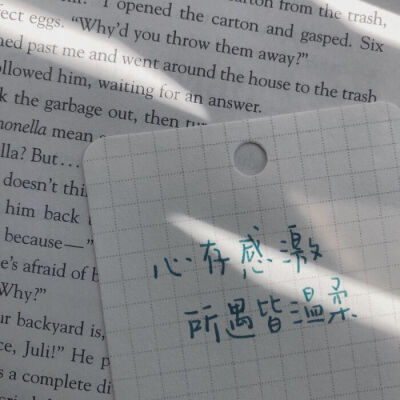 carton from the trash,
I opened the carton and gasped. Six
fect eggs. “Why’d you throw them away?”
ned past me and went around the house to the trash
ollowed him, waiting for an answer.
k the garbage out, then tur
monella mean
lla? But . . .
doesn’t thi
him back
because—”
e’s afraid of
Why?”
ur backyard is,
ce, Juli!” He p
s a complete di
心存感激
所遇皆温柔